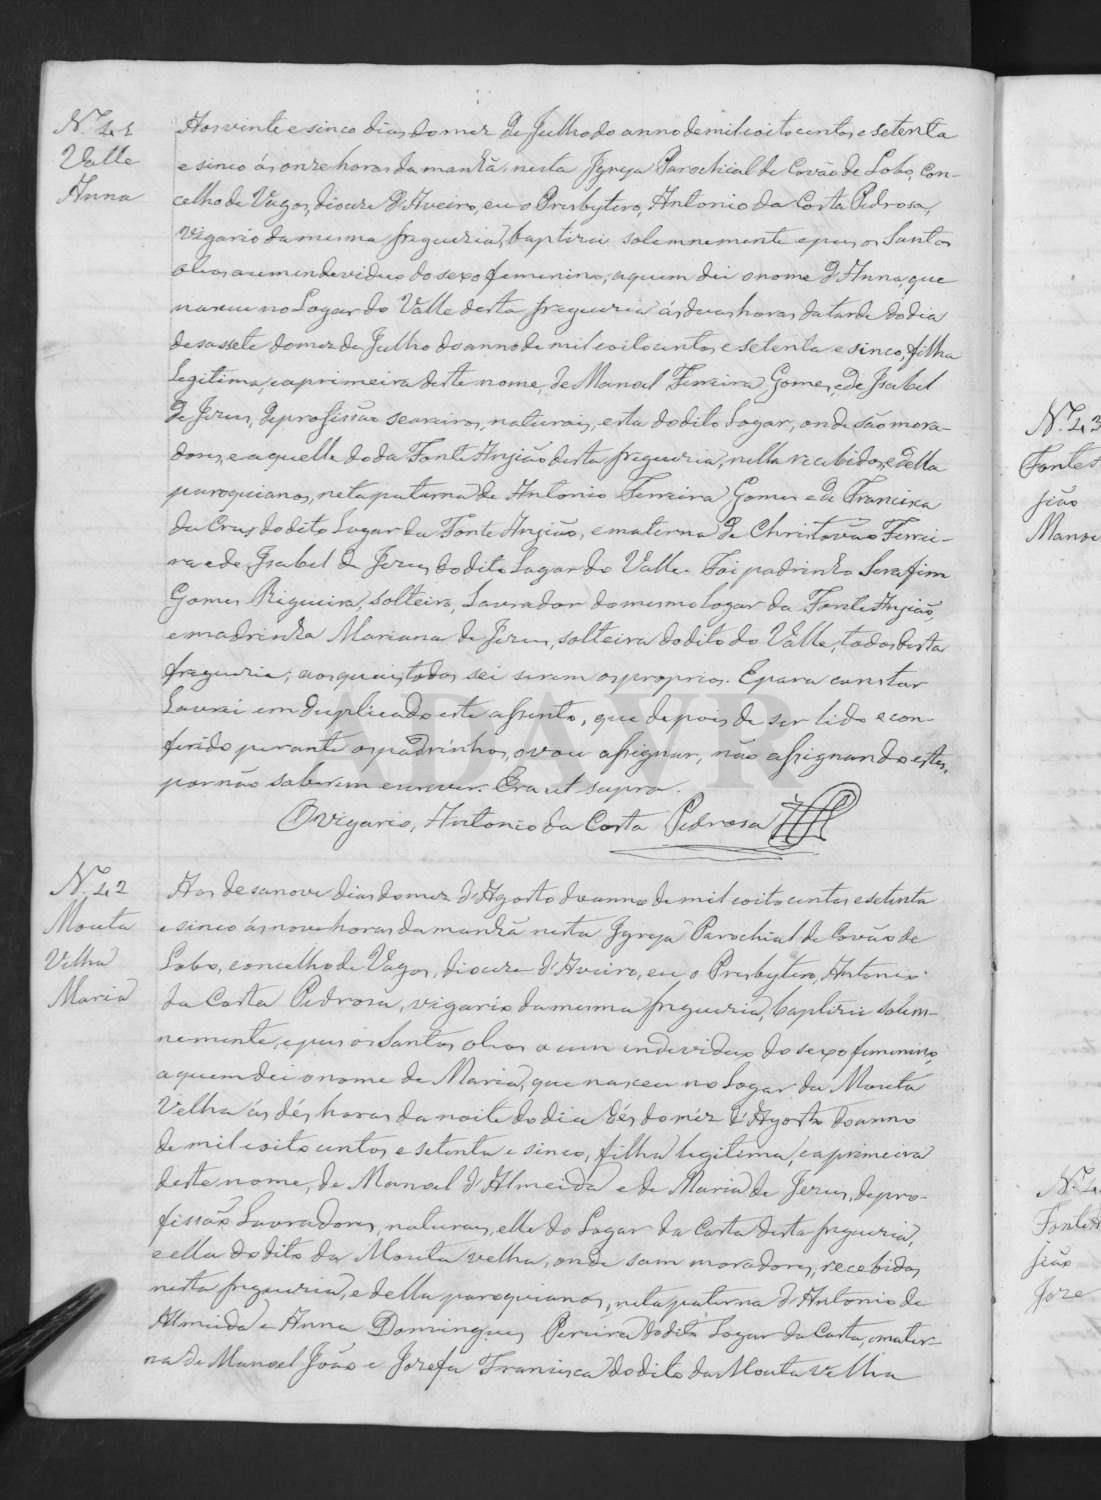 Nº 41
Valle
Anna
Aos vinte e sinco dias do mez de Julho do anno de mil e oito centos e setenta
e sinco ás onze horas da manhã nesta Igreja Parochial de Covão de Lobo, con-
celho de Vagos, diocese d'Aveiro, eu o Presbytero, Antonio da Costa Pedrosa,
Vigario da mesma freguezia, baptizei solemnemente e pus os Santos
oleos a um individuo do sexo femenino, a quem dei o nome d'Anna, que
nasceu no Logar do Valle desta freguezia ás duas horas da tarde do dia
desassete do mez de Julho do anno de mil e oito centos e setenta e sinco, filha
Legitima, e a primeira deste nome, de Manoel Ferreira Gomes, e de Isabel
de Jezus, de profissão seareiros, naturais, esta do dito Logar, onde são mora-
dores, e aquelle do da Fonte Anjião desta freguezia, nella recebidos, e della
paroquianos, neta paterna de Antonio Ferreira Gomes e de Francisca
da Crus do dito Lugar da Fonte Anjião, e materna de Christovão Ferrei-
ra e de Isabel de Jezus do dito Lagar do Valle. Foi padrinho Serafim
Gomes Rigueira, solteiro, Lavrador do mesmo Logar da Fonte Anjião,
e madrinha Mariana de Jezus, solteira do dito do Valle, todos desta
freguezia; aos quais todos sei serem os proprios. E para constar
Lavrei em duplicado este assento, que depois de ser lido e con-
ferido perante os padrinhos, o vou assignar, não assignando estes,
por não saberem escrever. Era ut supra.
O vigario, Antonio da Costa Pedrosa
Nº 42
Mouta
Velha
Maria
Aos desanove dias do mez d'Agosto do anno de mil e oito centos e setenta
e sinco ás nove horas da manhã nesta Igreja Parochial de Covão de
Lobo, concelho de Vagos, diocese d'Aveiro, eu o Presbytero, Antonio
da Costa Pedrosa, vigario da mesma freguezia, baptizei solem-
nemente, e pus os Santos oleos a um individuo do sexo femenino,
a quem dei o nome de Maria, que nasceu no Logar da Mouta
Velha ás dés horas da noite do dia dés do méz d'Agosto do anno
de mil e oito centos e setenta e sinco, filha legitima, e a primeira
deste nome, de Manoel d'Almeida e de Maria de Jezus, de pro-
fissão Lavradores, naturais, elle do Logar da Costa desta freguezia,
e ella do dito da Mouta velha, onde sam moradores, recebidos
nesta freguezia, e della paroquianos, neta paterna d'Antonio de
Almeida e Anna Domingues Pereira do dito Logar da Costa, e mater-
na de Manoel João e Jozefa Francisca do dito da Mouta velha
Nº 43
Fonte
jião
Nº 4
Fonte
jião
Joze
ADAVR